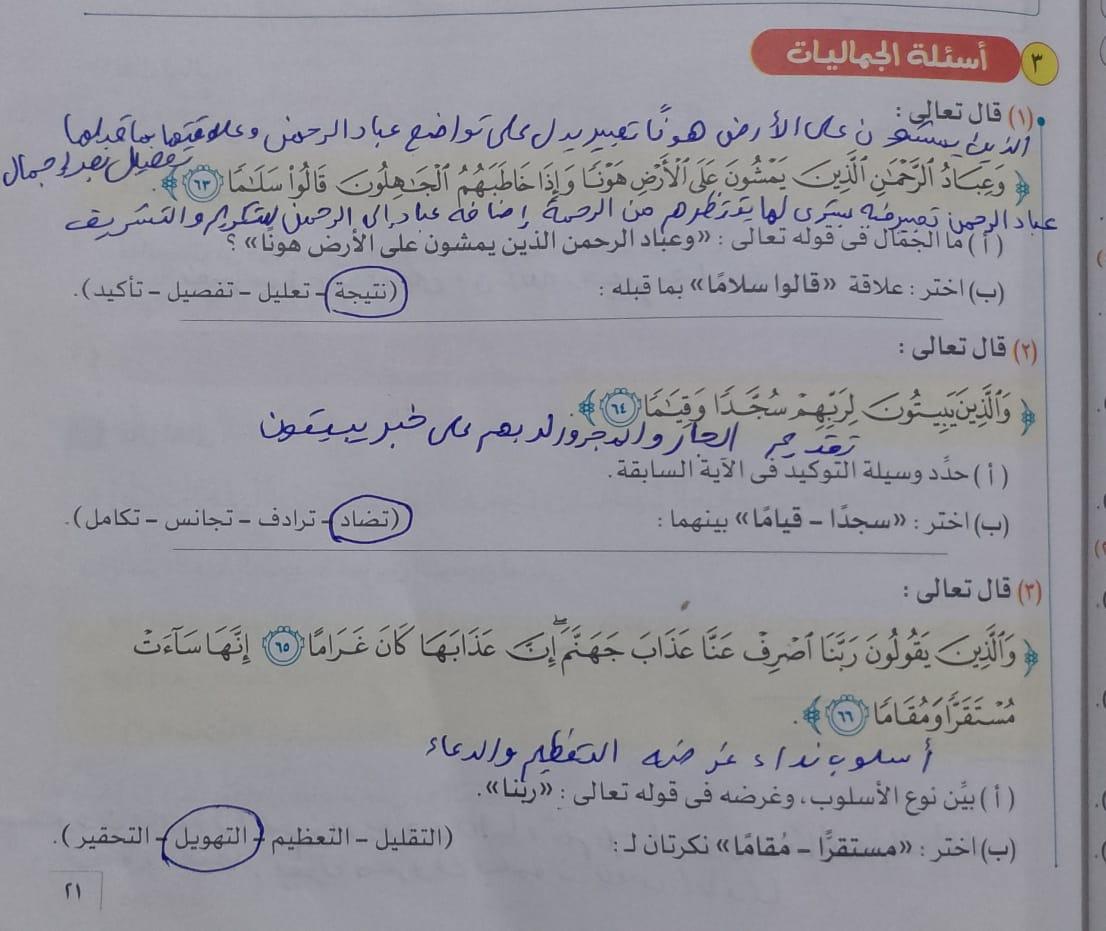 ٣ أسئلة الجماليات
(١) قال تعالى :
الذين يمشون على الأرض هونًا تعبير يدل على تواضع عباد الرحمن وعلاقتها بما قبلها
تفصيل بعد إجمال
﴿ وَعِبَادُ ٱلرَّحْمَٰنِ ٱلَّذِينَ يَمْشُونَ عَلَى ٱلْأَرْضِ هَوْنًا وَإِذَا خَاطَبَهُمُ ٱلْجَٰهِلُونَ قَالُوا۟ سَلَٰمًا ٦٣ ﴾.
عباد الرحمن تعبير فيه بشرى لما ينتظرهم من الرحمة إضافة عباد إلى الرحمن للتكريم والتشريف
(أ) ما الجمال فى قوله تعالى : «وعباد الرحمن الذين يمشون على الأرض هونًا» ؟
(ب) اختر : علاقة «قالوا سلامًا» بما قبله : (نتيجة – تعليل – تفصيل – تأكيد).
(٢) قال تعالى :
﴿ وَٱلَّذِينَ يَبِيتُونَ لِرَبِّهِمْ سُجَّدًا وَقِيَٰمًا ٦٤ ﴾.
تقديم الجار والمجرور لربهم على خبر يبيتون
(أ) حدِّد وسيلة التوكيد فى الآية السابقة.
(ب) اختر : «سجدًا – قيامًا» بينهما : (تضاد – ترادف – تجانس – تكامل).
(٣) قال تعالى :
﴿ وَٱلَّذِينَ يَقُولُونَ رَبَّنَا ٱصْرِفْ عَنَّا عَذَابَ جَهَنَّمَ ۖ إِنَّ عَذَابَهَا كَانَ غَرَامًا ٦٥ إِنَّهَا سَآءَتْ
مُسْتَقَرًّا وَمُقَامًا ٦٦ ﴾.
أسلوب نداء غرضه التعظيم والدعاء
(أ) بيِّن نوع الأسلوب، وغرضه فى قوله تعالى : «ربَّنا».
(ب) اختر : «مستقرًّا – مُقامًا» نكرتان لـ : (التقليل – التعظيم – التهويل – التحقير).
٢١